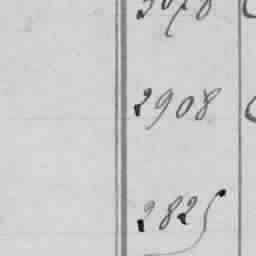 2908
2825